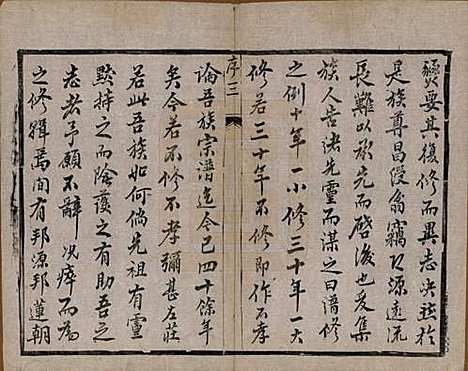 要其復修而異志決於
是族尊昌殷翁竊以源遠流
長難以承先而啟後也爰集
族人告諸先靈而謀之曰譜修
之例十年一小修三十年一大
修若三十年不修即作不孝
序三
論吾族宗譜迄今已四十餘年
矣今若不修不孝彌甚左莊
若此吾族如何倘先祖有靈
默持之而陰護之有助吾之
志者予願不辭況瘁而為
之修輯焉間有邦源邦蓮朝